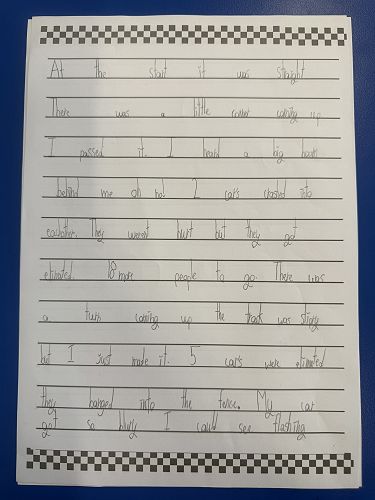 At the start it was straight
There was a little corner coming up
I passed it. I heard a big
behind me oh no! 2 car's crashed into
eachother. They weren't hurt but they got
elimated. 18 more people to go. There was
a turn coming up the track was slippy
but I just made it. 5 car's were elimated
they banged into the fence. My car
got so blurry I could see flashing